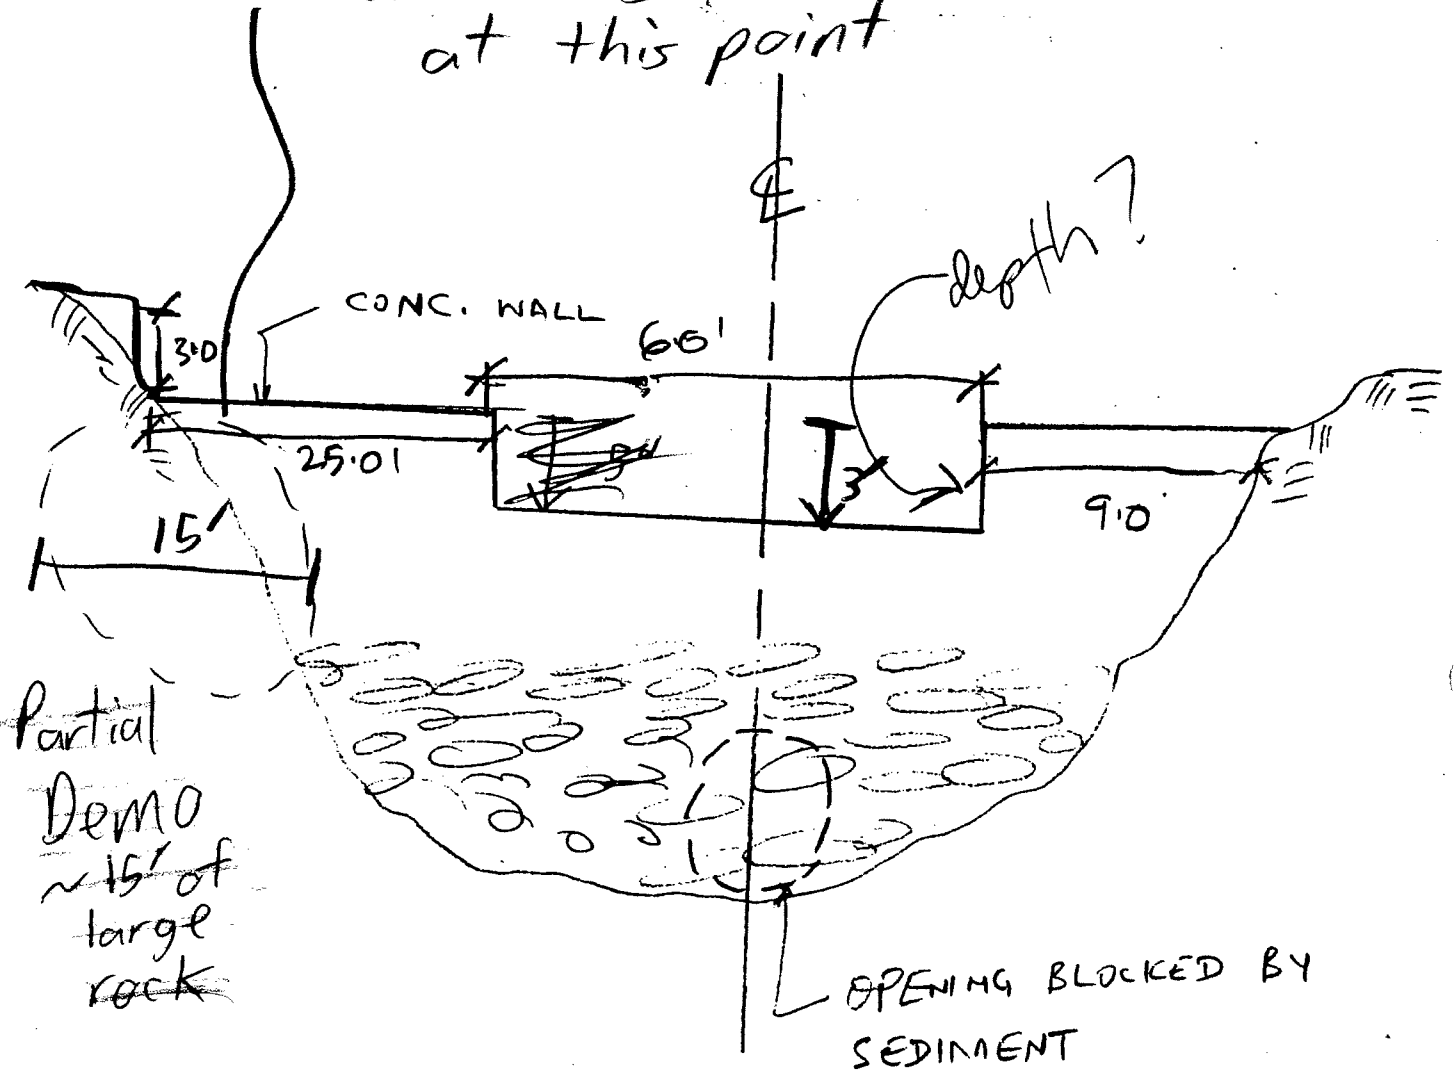 at this point
℄
depth?
CONC. WALL
3.0
6.0'
25.01
3'
9.0'
15'
Partial
Demo
~15' of
large
rock
OPENING BLOCKED BY
SEDIMENT